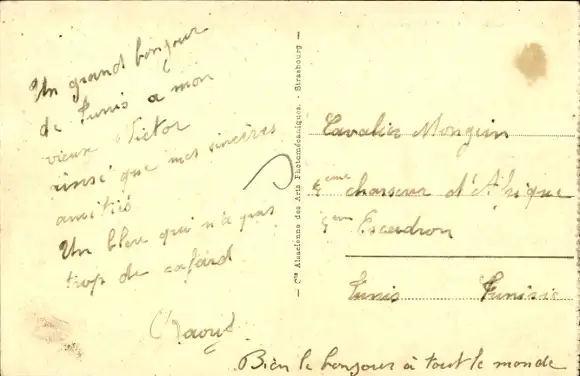 Un grand bonjour
de Tunis a mon
vieux Victor
ainsi que mes sincères
amitiés
Un bleu qui n'a pas
trop de cafard
Cie Alsacienne des Arts Photomécaniques. - Strasbourg
Cavalier Mongin
eme chasseur d'Afrique
5eme Escadron
Tunis Tunisie
Bien le bonjour à tout le monde